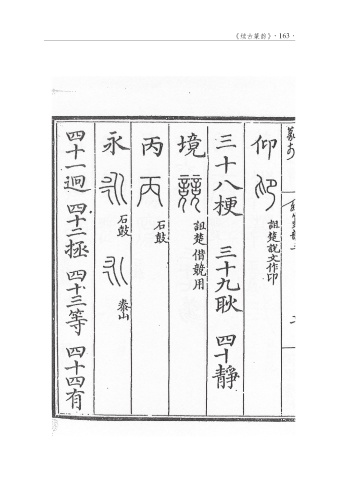 《续古篆韵》·163·
仰 詛楚說文作印
三十八梗 三十九耿 四十靜
境 詛楚借競用
丙 石鼓
永 石鼓 泰山
四十一迥 四十二拯 四十三等 四十四有